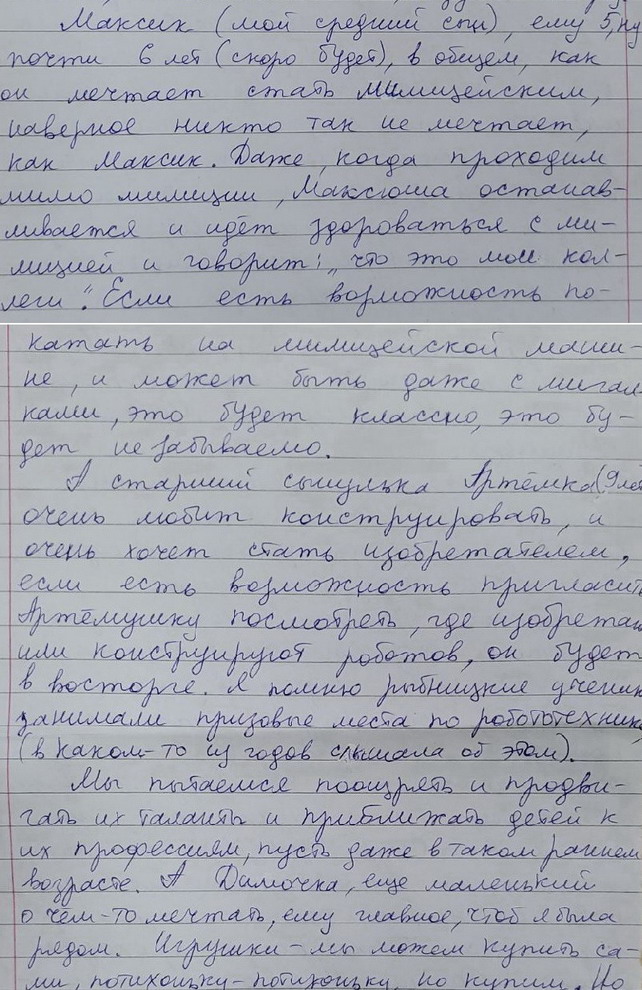 Максик (мой средний сын), ему 5, ну
почти 6 лет (скоро будет), в общем, как
он мечтает стать милицейским,
наверное никто так не мечтает,
как Максик. Даже, когда проходим
мимо милиции, Максюша останав-
ливается и идёт здороваться с ми-
лицией и говорит: „что это мои кол-
леги". Если есть возможность по-
катать на милицейской маши-
не, и может быть даже с мигал-
ками, это будет классно, это бу-
дет незабываемо.
А старший сынулька Артёмка (9 лет
очень любит конструировать, и
очень хочет стать изобретателем,
если есть возможность пригласить
Артёмушку посмотреть, где изобретаю
или конструируют роботов, он будет
в восторге. Я помню рыбницкие ученик
занимали призовые места по робототехник
(в каком-то из годов слышала об этом).
Мы пытаемся поощрять и продви-
гать их таланты и приближать детей к
их профессиям, пусть даже в таком раннем
возрасте. А Димочка, еще маленький
о чём-то мечтать, ему главное, чтоб я была
рядом. Игрушки - мы можем купить са-
ми, потихоньку-потихоньку, но купим. Но